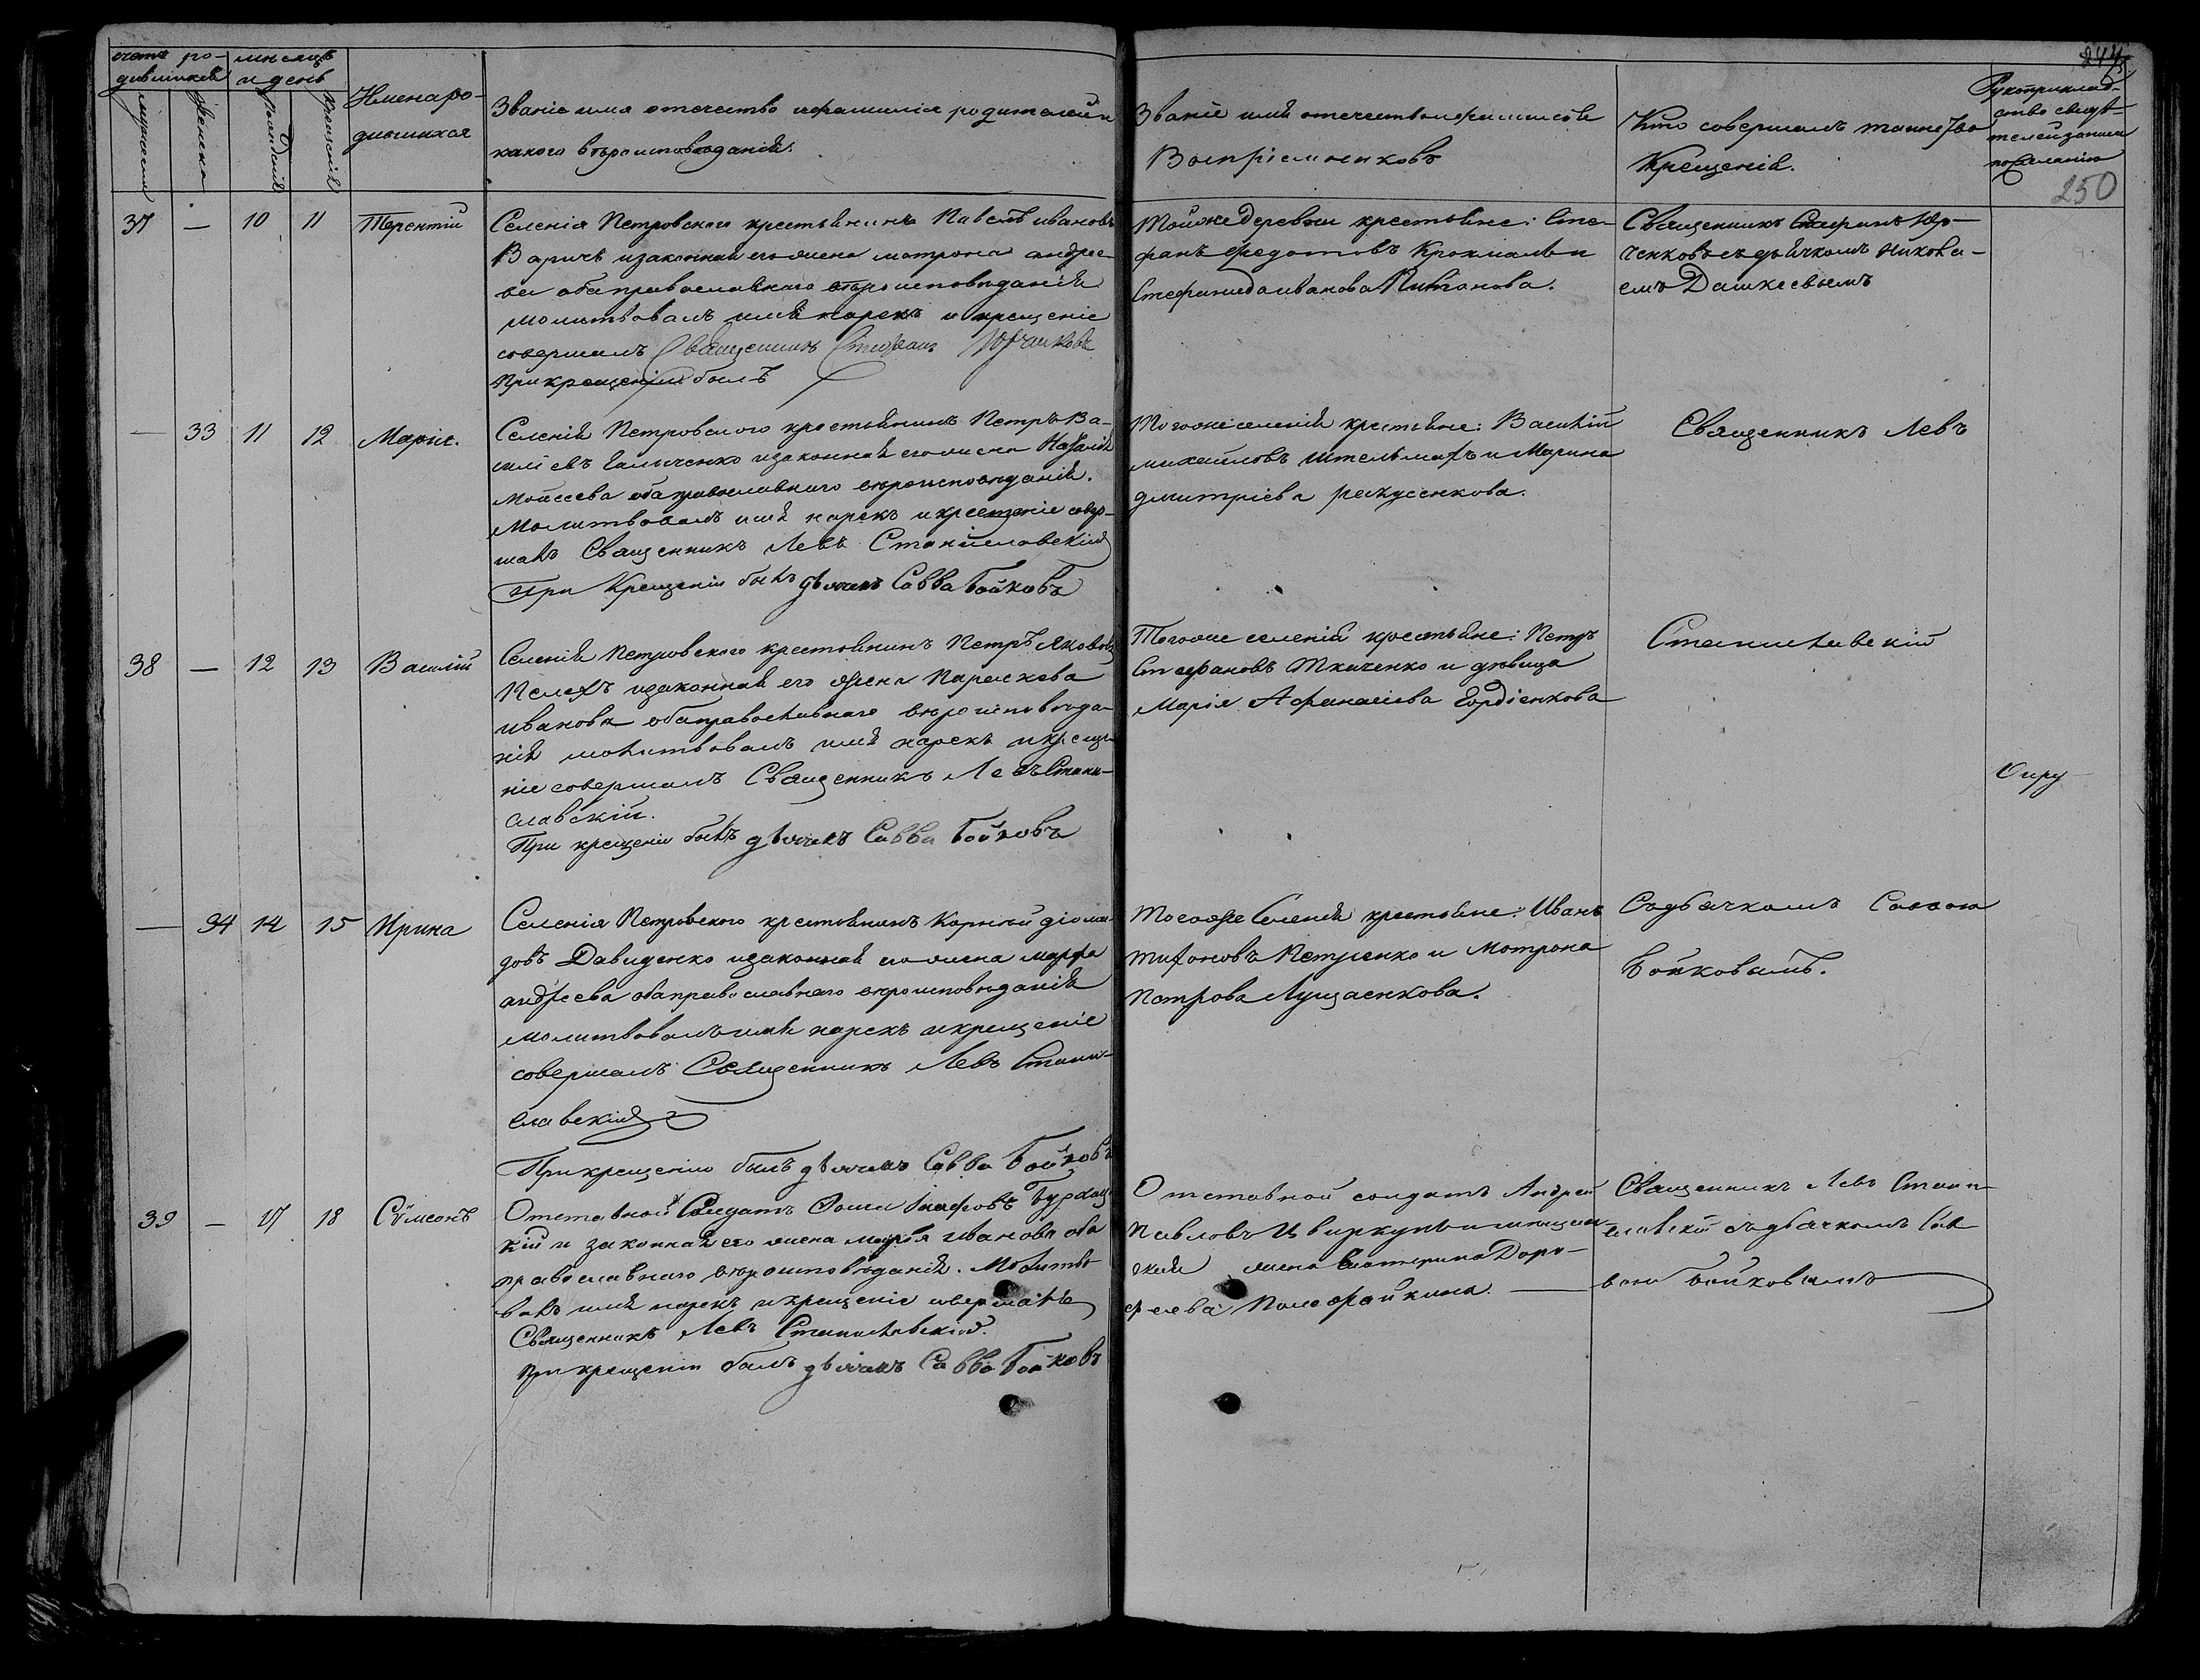 счетъ ро-
дившихся
мѣсяцъ
и день
мужеска
женска
рожденія
крещенія
Имена ро-
дившихся
Званіе имя отечество и фамилія родителей и
какого вѣроисповѣданія.
Званіе имя отечество и фамилія
Воспріемниковъ
Кто совершалъ таинство
Крещенія.
Рукоприклад-
ство свидѣ-
телей записи
по желанію
250
37 — 10 11 Терентій
Селенія Петровского крестьянинъ Павелъ Ивановъ
Варичъ и законная его жена Матрона Андрее-
ва оба православнаго вѣроисповѣданія
молитвовалъ имя нарекъ и крещеніе
совершалъ Священникъ Стефанъ Юрченковъ
При крещеніи былъ
Той же деревни крестьяне: Сте-
фанъ Федотовъ Крохмаль и
Стефанида Иванова
Священникъ Стефанъ Юр-
ченковъ съ дьячкомъ Никола-
емъ Дашкевыемъ
— 33 11 12 Марія.
Селенія Петровского крестьянинъ Петръ Ва-
силіевъ Галыченко и законная его жена Наталія
Моисеева оба православнаго вѣроисповѣданія.
Молитвовалъ имя нарекъ и крещеніе совер-
шалъ Священникъ Левъ Станиславскій
При Крещеніи былъ дьячекъ Савва Бойковъ
Того же селенія крестьяне: Василій
Михайловъ Штельмахъ и Марина
Дмитріева
Священникъ Левъ
38 — 12 13 Василій
Селенія Петровского крестьянинъ Петръ Якововъ
Пелехъ и законная его жена Параскева
Иванова оба православнаго вѣроисповѣда-
нія молитвовалъ имя нарекъ и креще-
ніе совершалъ Священникъ Левъ Стани-
славскій.
При крещеніи былъ дьячекъ Савва Бойковъ
Того же селенія крестьяне: Петръ
Стефановъ Ткаченко и дѣвица
Марія Афанасіева Гордіенкова
Станиславскій
— 34 14 15 Ирина
Селенія Петровского крестьянинъ Корнѣй Діоми-
довъ Давиденко и законная его жена Марфа
Андреева оба православнаго вѣроисповѣданія
молитвовалъ имя нарекъ и крещеніе
совершалъ Священникъ Левъ Стани-
славскій
При крещеніи былъ дьячекъ Савва Бойковъ
Того же Селенія крестьяне: Иванъ
Тихоновъ Петренко и Мотрона
Петрова Лущаенкова.
Съ дьячкомъ Саввою
Бойковымъ.
39 — 17 18 Сѵмеонъ
Отставной Солдатъ Фома
кій и законная его жена Марія Иванова оба
православнаго вѣроисповѣданія. Молитво-
валъ имя нарекъ и крещеніе совершалъ
Священникъ Левъ Станиславскій.
При крещеніи былъ дьячекъ Савва Бойковъ
Отставной солдатъ Андрей
Павловъ Цвиркунъ и
жена Екатерина Доро-
феева
Священникъ Левъ Стани-
славскій съ дьячкомъ Сав-
вою Бойковымъ